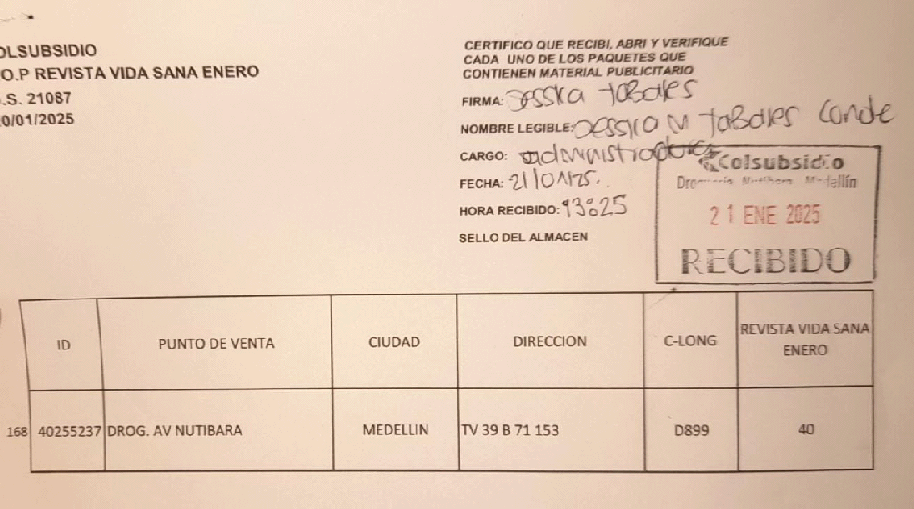 OLSUBSIDIO
O.P REVISTA VIDA SANA ENERO
.S. 21087
0/01/2025
CERTIFICO QUE RECIBI, ABRI Y VERIFIQUE
CADA UNO DE LOS PAQUETES QUE
CONTIENEN MATERIAL PUBLICITARIO
FIRMA: Jessica Tabares
NOMBRE LEGIBLE: Jessica M Tabares Conde
CARGO: administradora
FECHA: 21/01/25.
HORA RECIBIDO: 13:25
SELLO DEL ALMACEN
Colsubsidio
Droguería Nutibara Medellín
21 ENE 2025
RECIBIDO
ID PUNTO DE VENTA CIUDAD DIRECCION C-LONG REVISTA VIDA SANA ENERO
168 40255237 DROG. AV NUTIBARA MEDELLIN TV 39 B 71 153 D899 40